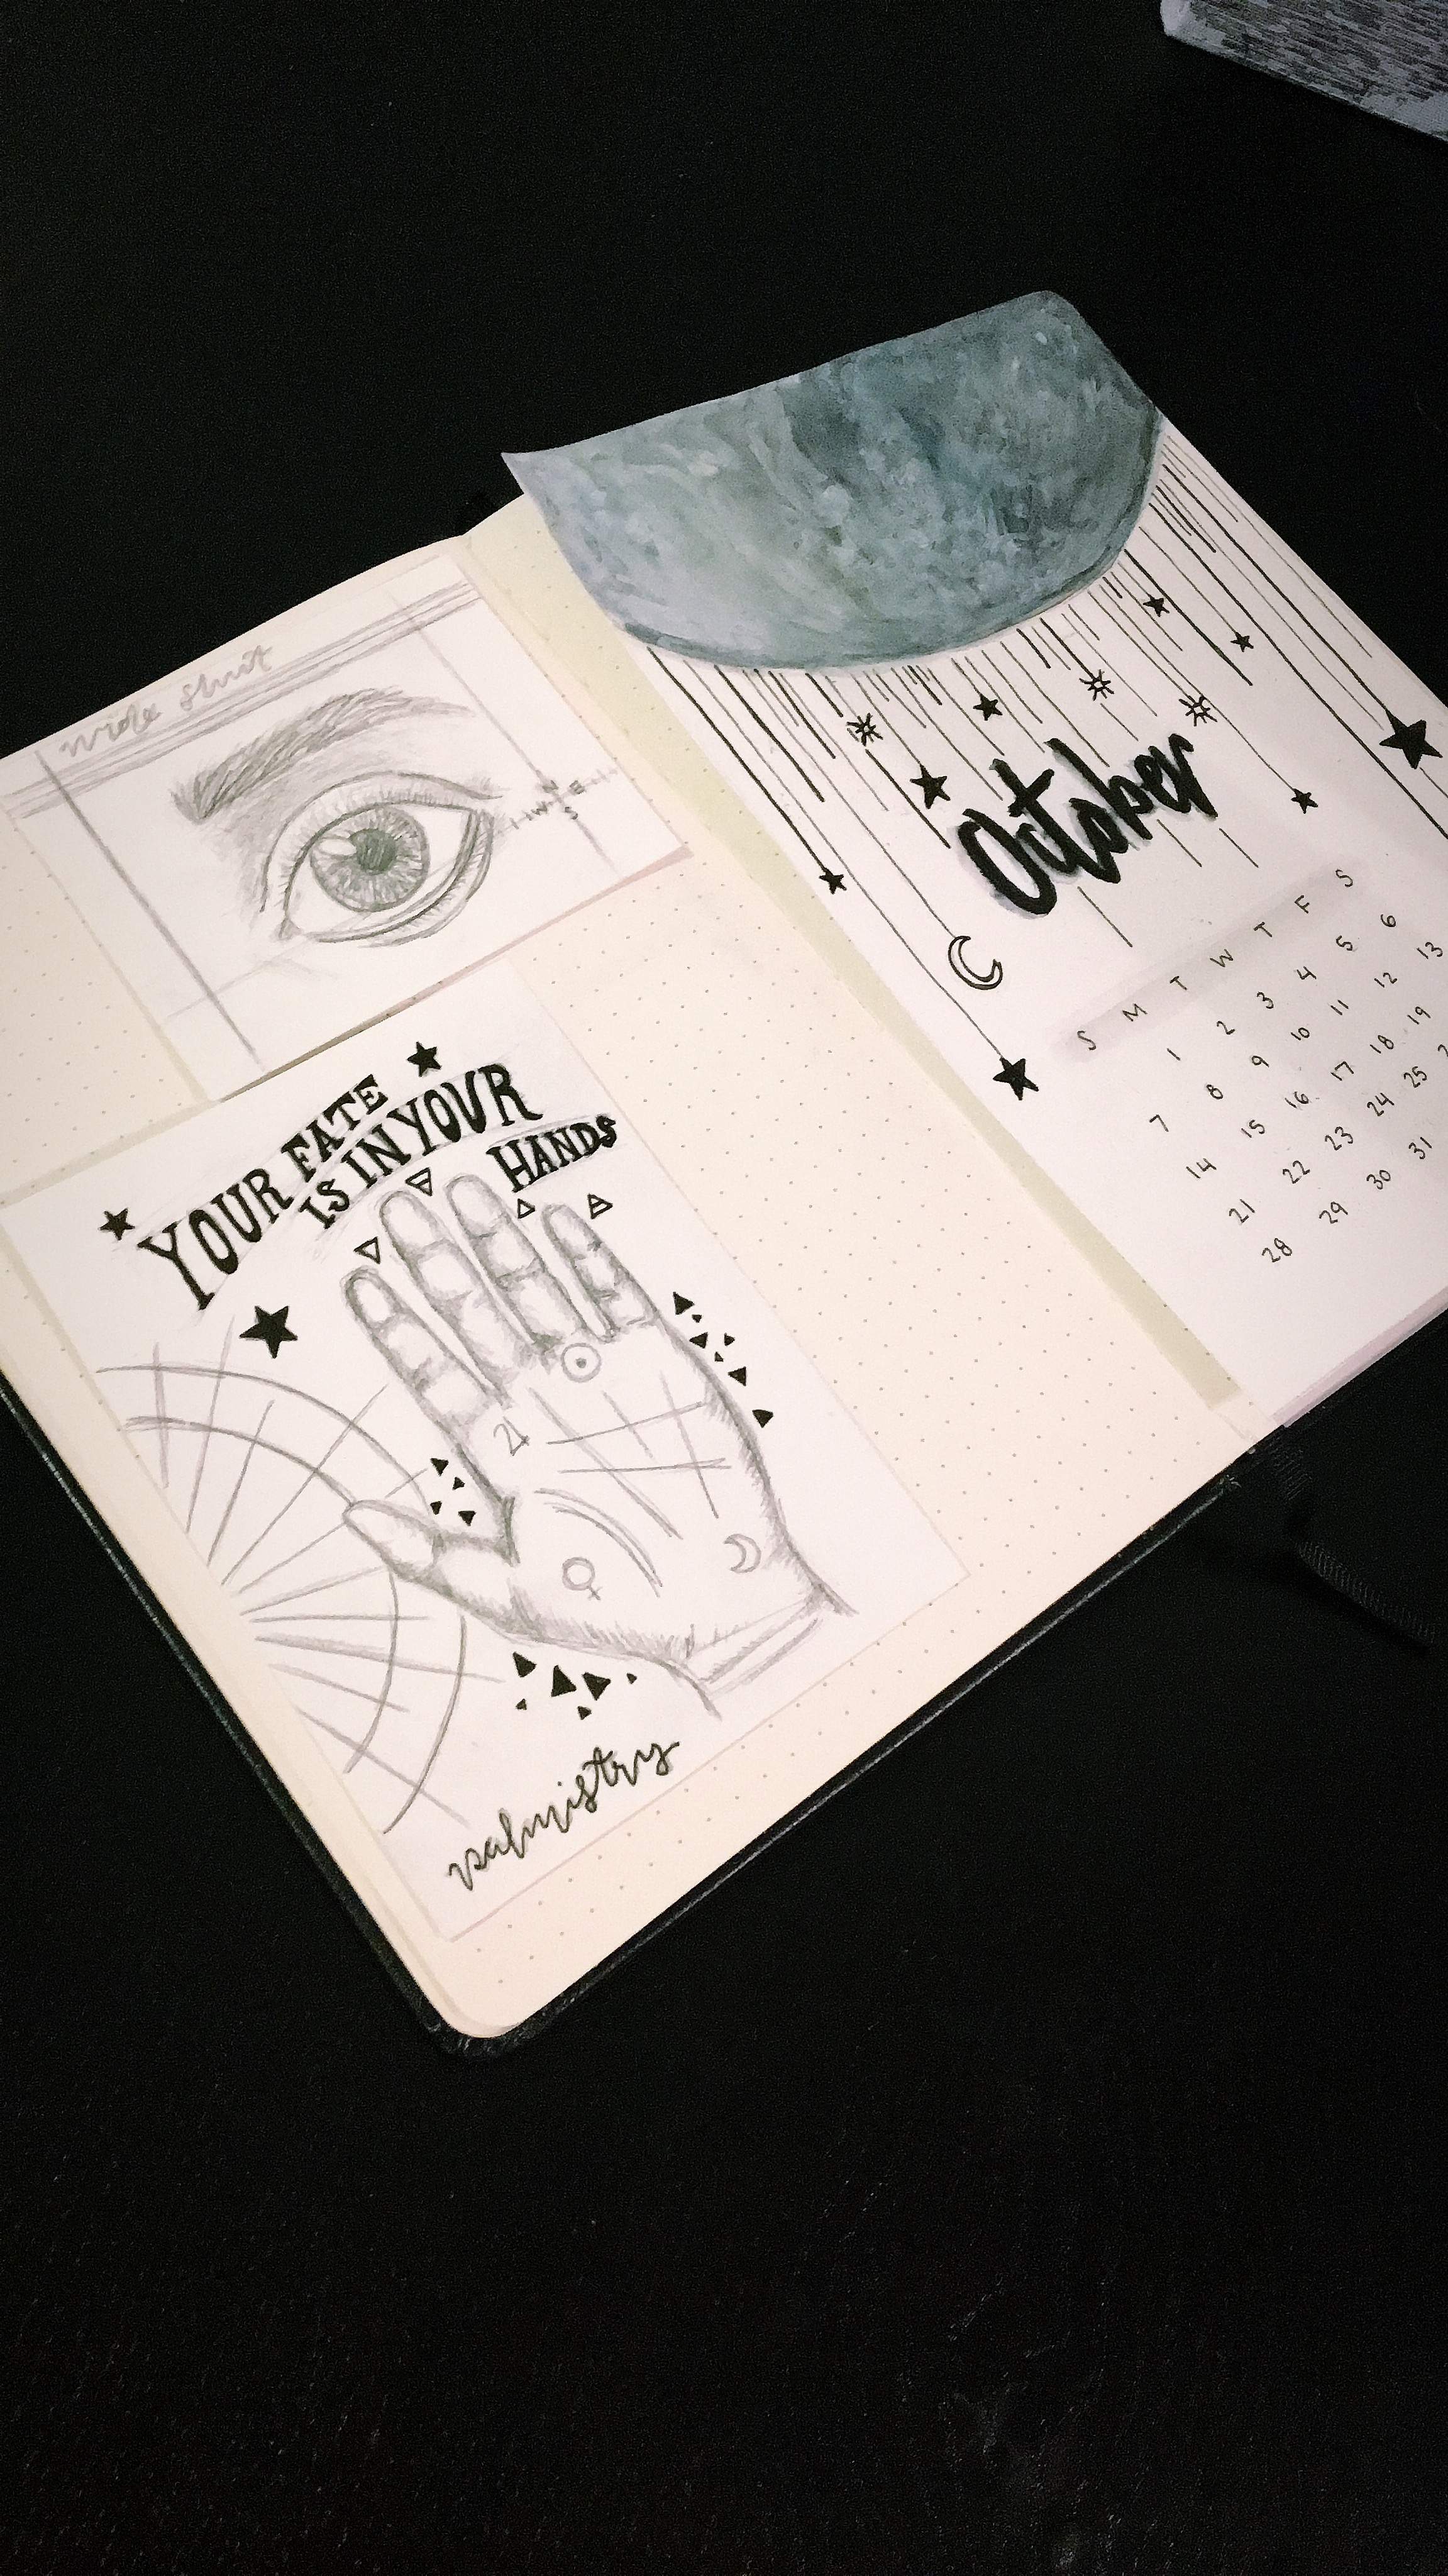 wide shut
N
W E
S
YOUR FATE
IS IN YOUR
HANDS
palmistry
October
S M T W T F S
1 2 3 4 5 6
7 8 9 10 11 12 13
14 15 16 17 18 19
21 22 23 24 25
28 29 30 31